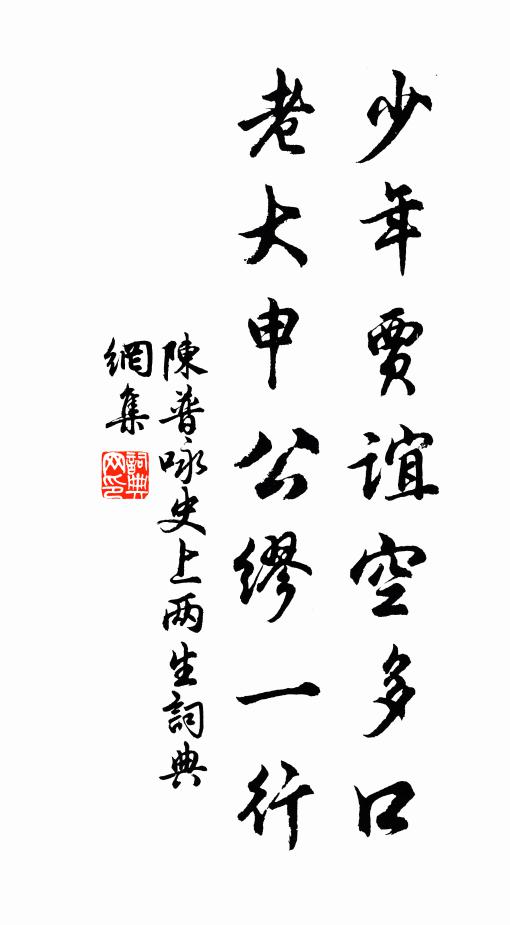 少年賈誼空多口
老大申公繆一行
陳普咏史上两生詞典
網集
詞典網印